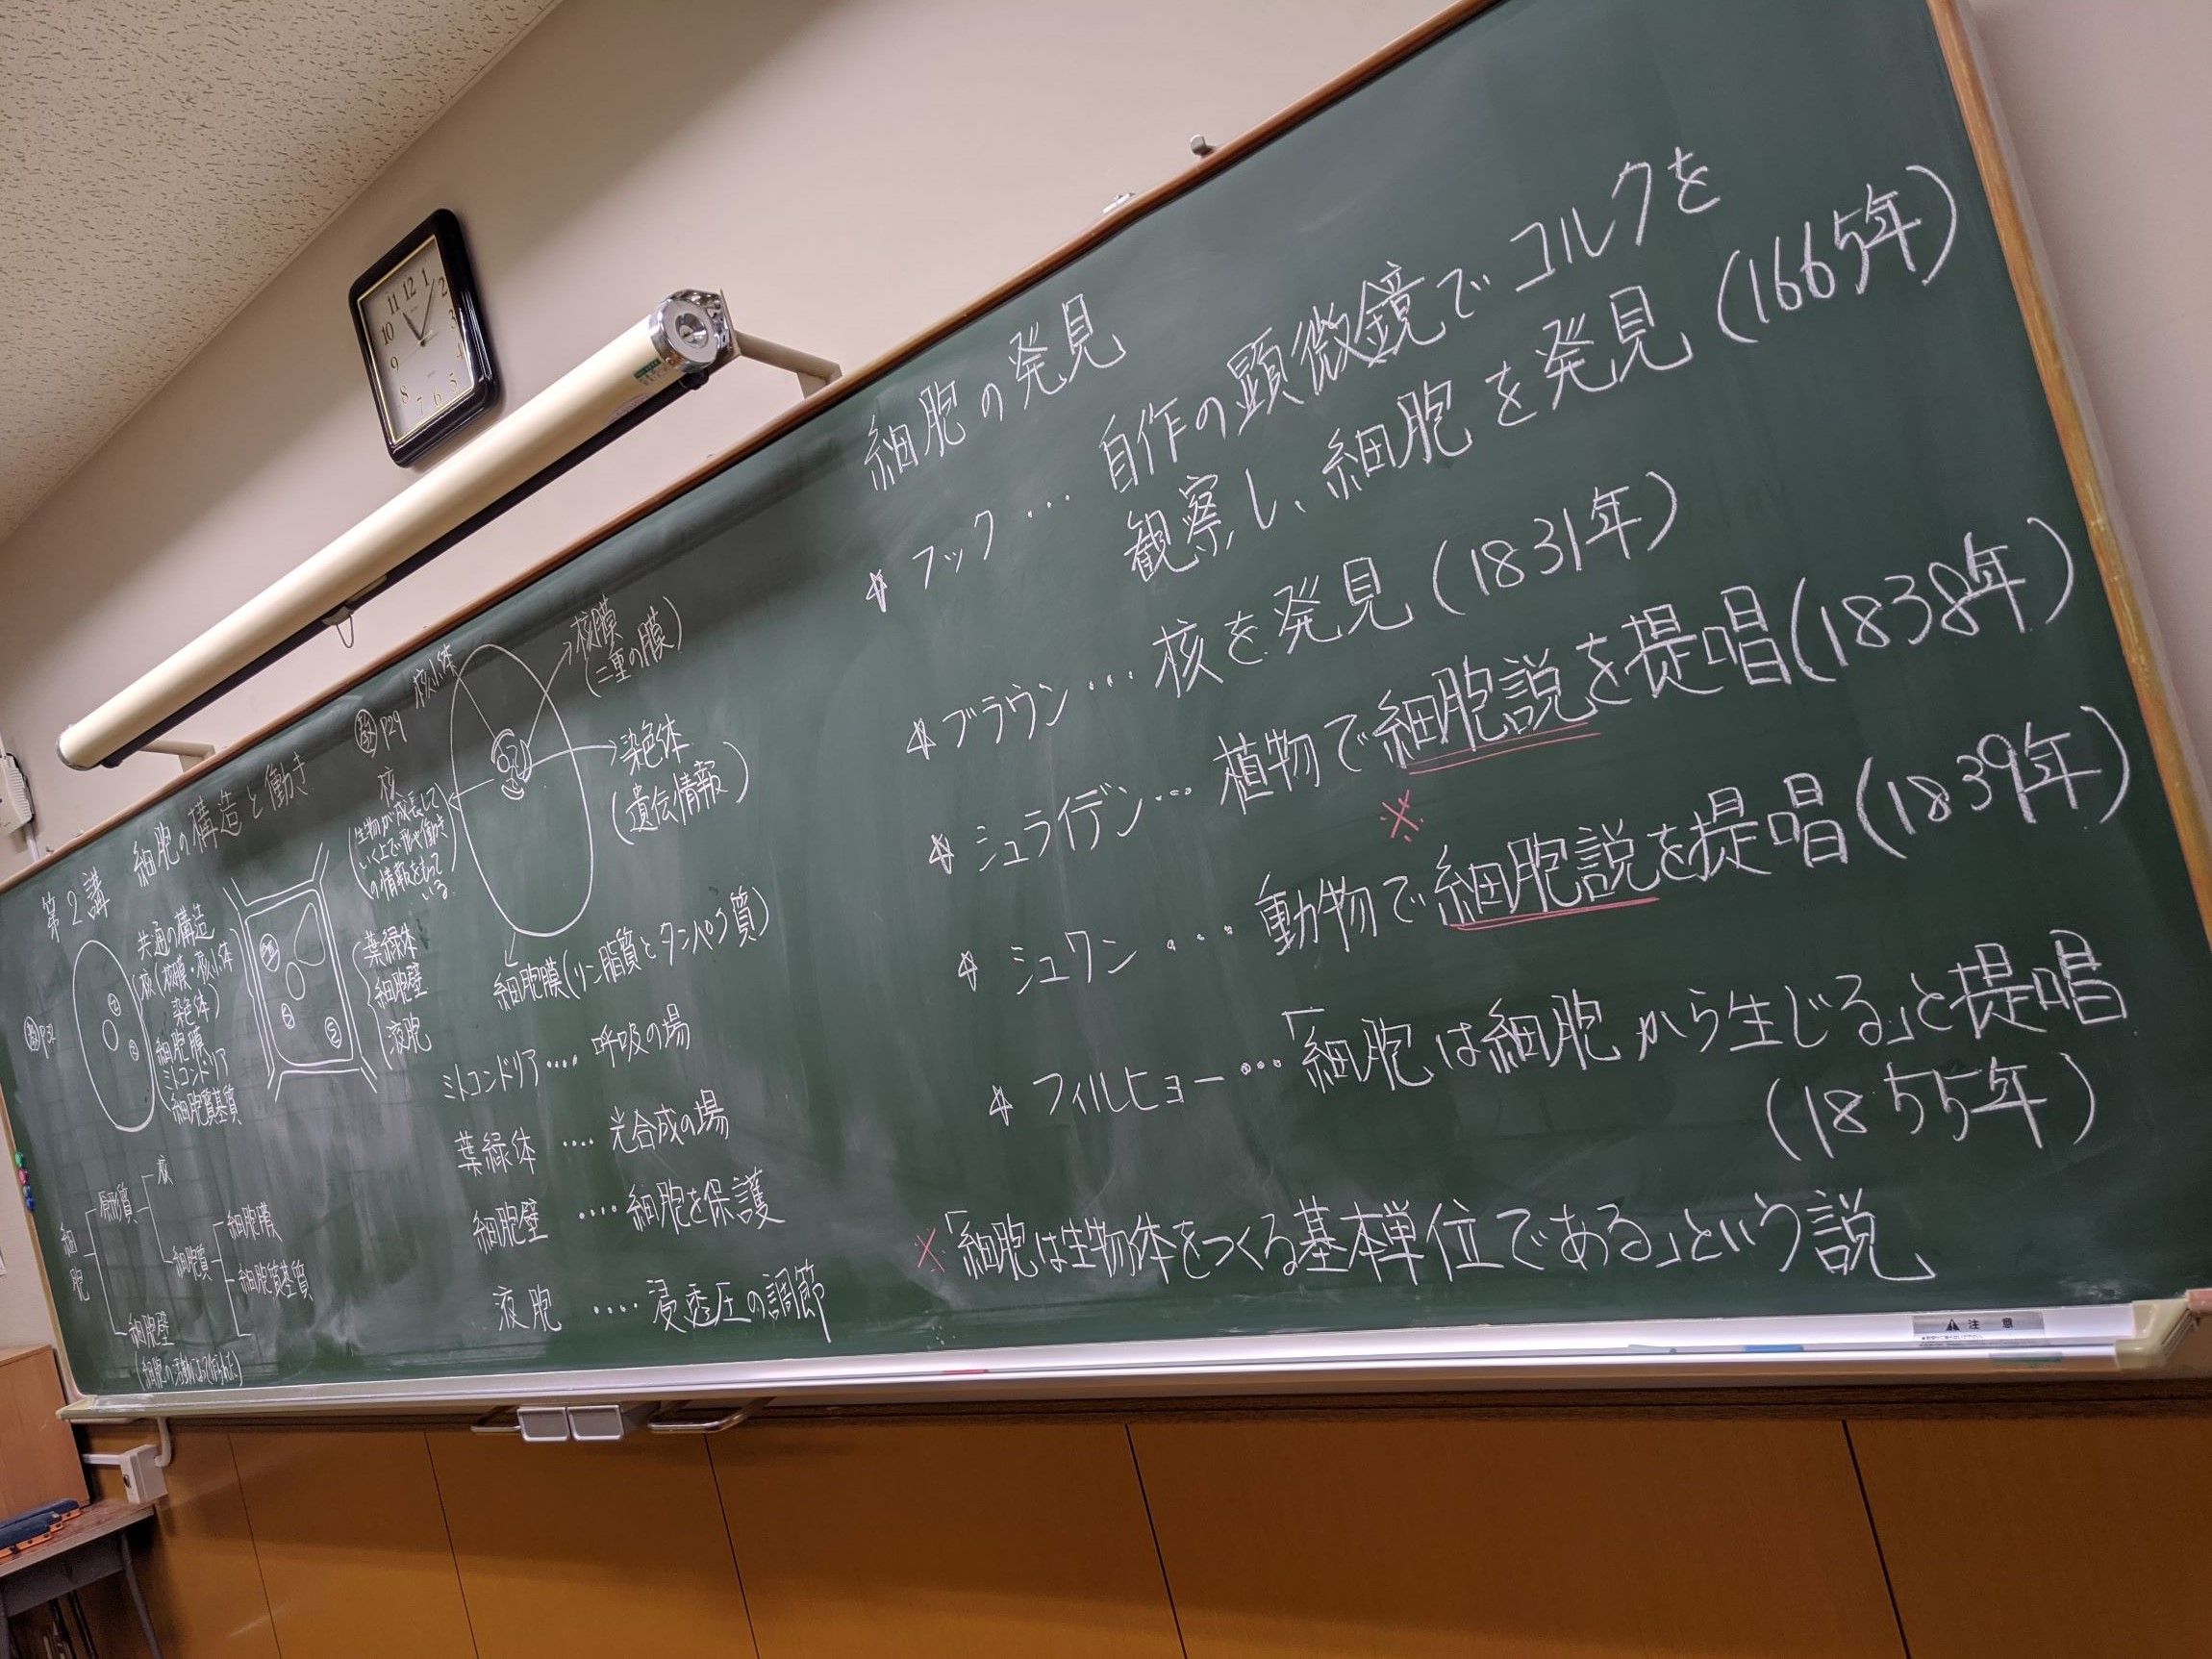 第2講 細胞の構造と働き
教P30
共通の構造
核(核膜・核小体
染色体)
細胞膜
ミトコンドリア
細胞質基質
葉緑体
細胞壁
液胞
細胞
原形質
核
細胞質
細胞膜
細胞質基質
細胞壁
教P29
核小体
核膜
(二重の膜)
核
(生物が成長して
いく上で形や働き
の情報をもって
いる)
染色体
(遺伝情報)
細胞膜(リン脂質とタンパク質)
ミトコンドリア‥‥呼吸の場
葉緑体‥‥光合成の場
細胞壁‥‥細胞を保護
液胞‥‥浸透圧の調節
細胞の発見
☆フック…自作の顕微鏡でコルクを
観察し、細胞を発見(1665年)
☆ブラウン…核を発見(1831年)
☆シュライデン…植物で細胞説を提唱(1838年)
※
☆シュワン…動物で細胞説を提唱(1839年)
☆フィルヒョー…「細胞は細胞から生じる」と提唱
(1855年)
※「細胞は生物体をつくる基本単位である」という説
11 12 1
10 2
9 3
8 4
7 6 5
注意